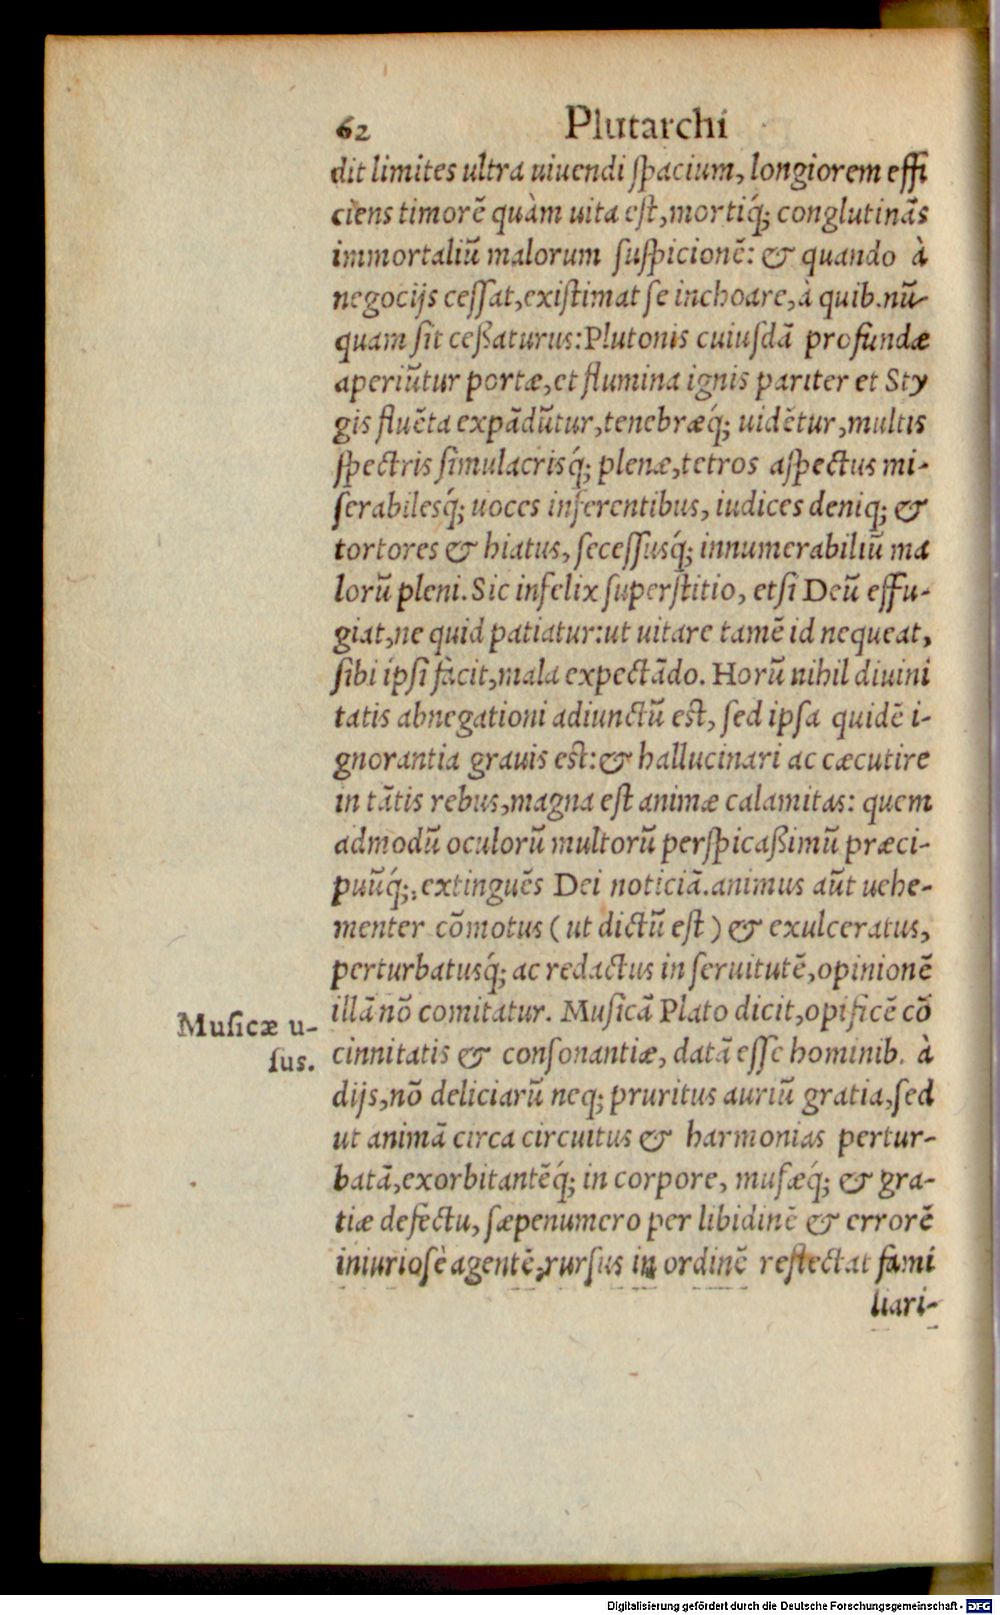 62 Plutarchi
dit limites ultra uiuendi ſpacium, longiorem effi
ciens timorē quàm uita eſt, mortiq́; conglutinās
immortaliū malorum ſuſpicionē: & quando à
negocijs ceſſat, exiſtimat ſe inchoare, à quib. nū-
quam ſit ceßaturus: Plutonis cuiuſdā profundæ
aperiūtur portæ, et flumina ignis pariter et Sty
gis fluēta expādūtur, tenebræq́; uidētur, multis
ſpectris ſimulacrisq́; plenæ, tetros aſpectus mi-
ſerabilesq́; uoces inferentibus, iudices deniq; &
tortores & hiatus, ſeceſſusq́; innumerabiliū ma
lorū pleni. Sic infelix ſuperſtitio, etſi Deū effu-
giat, ne quid patiatur: ut uitare tamē id nequeat,
ſibi ipſi facit, mala expectādo. Horū nihil diuini
tatis abnegationi adiunctū est, ſed ipſa quidē i-
gnorantia grauis est: & hallucinari ac cæcutire
in tātis rebus, magna eſt animæ calamitas: quem
admodū oculorū multorū perſpicaßimū præci-
puūq́;, extinguēs Dei noticiā. animus aūt uehe-
menter cōmotus (ut dictū eſt) & exulceratus,
perturbatusq́; ac redactus in ſeruitutē, opinionē
illā nō comitatur. Muſicā Plato dicit, opificē cō
Muſicæ u-
ſus.
cinnitatis & conſonantiæ, datā eſſe hominib. à
dijs, nō deliciarū neq; pruritus auriū gratia, ſed
ut animā circa circuitus & harmonias pertur-
batā, exorbitantēq́; in corpore, muſæq́; & gra-
tiæ defectu, ſæpenumero per libidinē & errorē
iniurioſè agentē, rurſus in ordinē reflectat fami
liari-
Digitalisierung gefördert durch die Deutsche Forschungsgemeinschaft - DFG